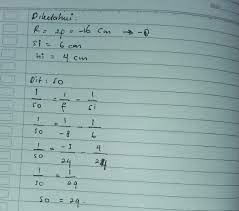 Diketahui:
R = 2f = -16 cm → -8
si = 6 cm
hi = 4 cm
Dit: so
1/so = 1/f - 1/si
1/so = 1/-8 - 1/6
1/so = -3/24 - 4/24
1/so = 1/24
so = 24